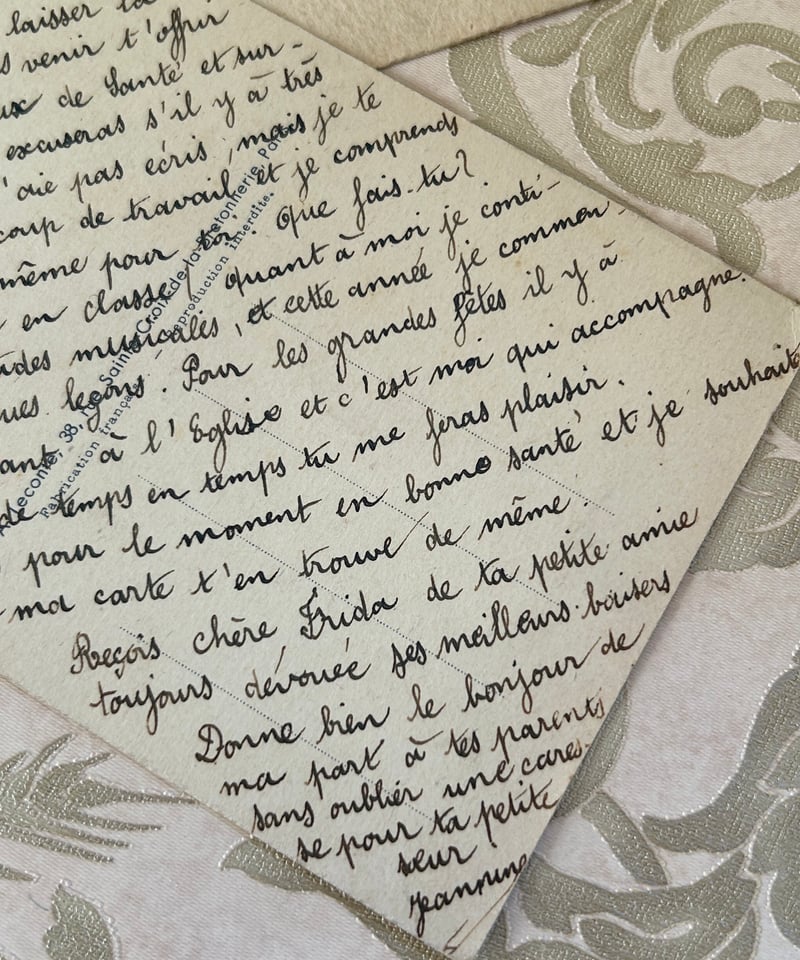 laisser la
venir t'offrir
de Santé et sur-
excuseras s'il y à très
aie pas ecris, mais je te
coup de travail et je comprends
même pour toi. Que fais-tu?
en classe, quant à moi je conti-
musicales, et cette année je commen-
leçons. Pour les grandes fêtes il y à
à l'Eglise et c'est moi qui accompagne.
de temps en temps tu me feras plaisir.
pour le moment en bonne santé et je souhait
ma carte t'en trouve de même.
Reçois chère Frida de ta petite amie
toujours dévouée ses meilleurs baisers
Donne bien le bonjour de
ma part à tes parents
sans oublier une cares-
se pour ta petite
sœur
Jeannine
Leconte, 38, rue Sainte-Croix-de-la-Bretonnerie,
Fabrication française
Reproduction interdite.